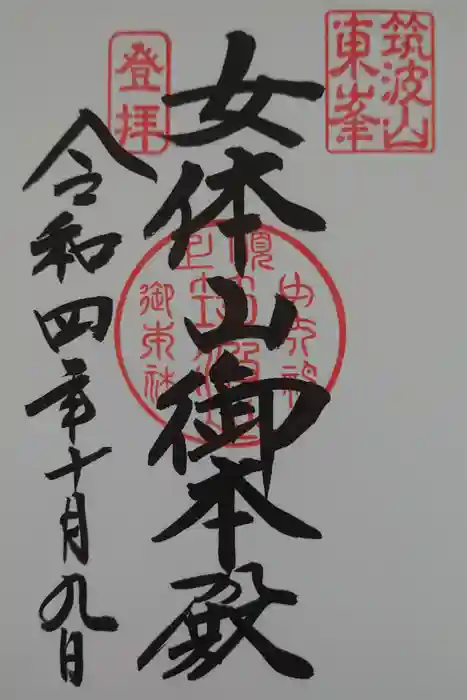 筑波山
東峯
登拝
女体山御本殿
御東社
令和四年十月九日